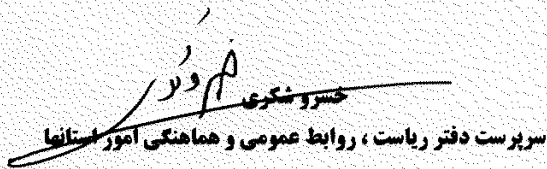 خسرو شکری
سرپرست دفتر ریاست ، روابط عمومی و هماهنگی امور استانها